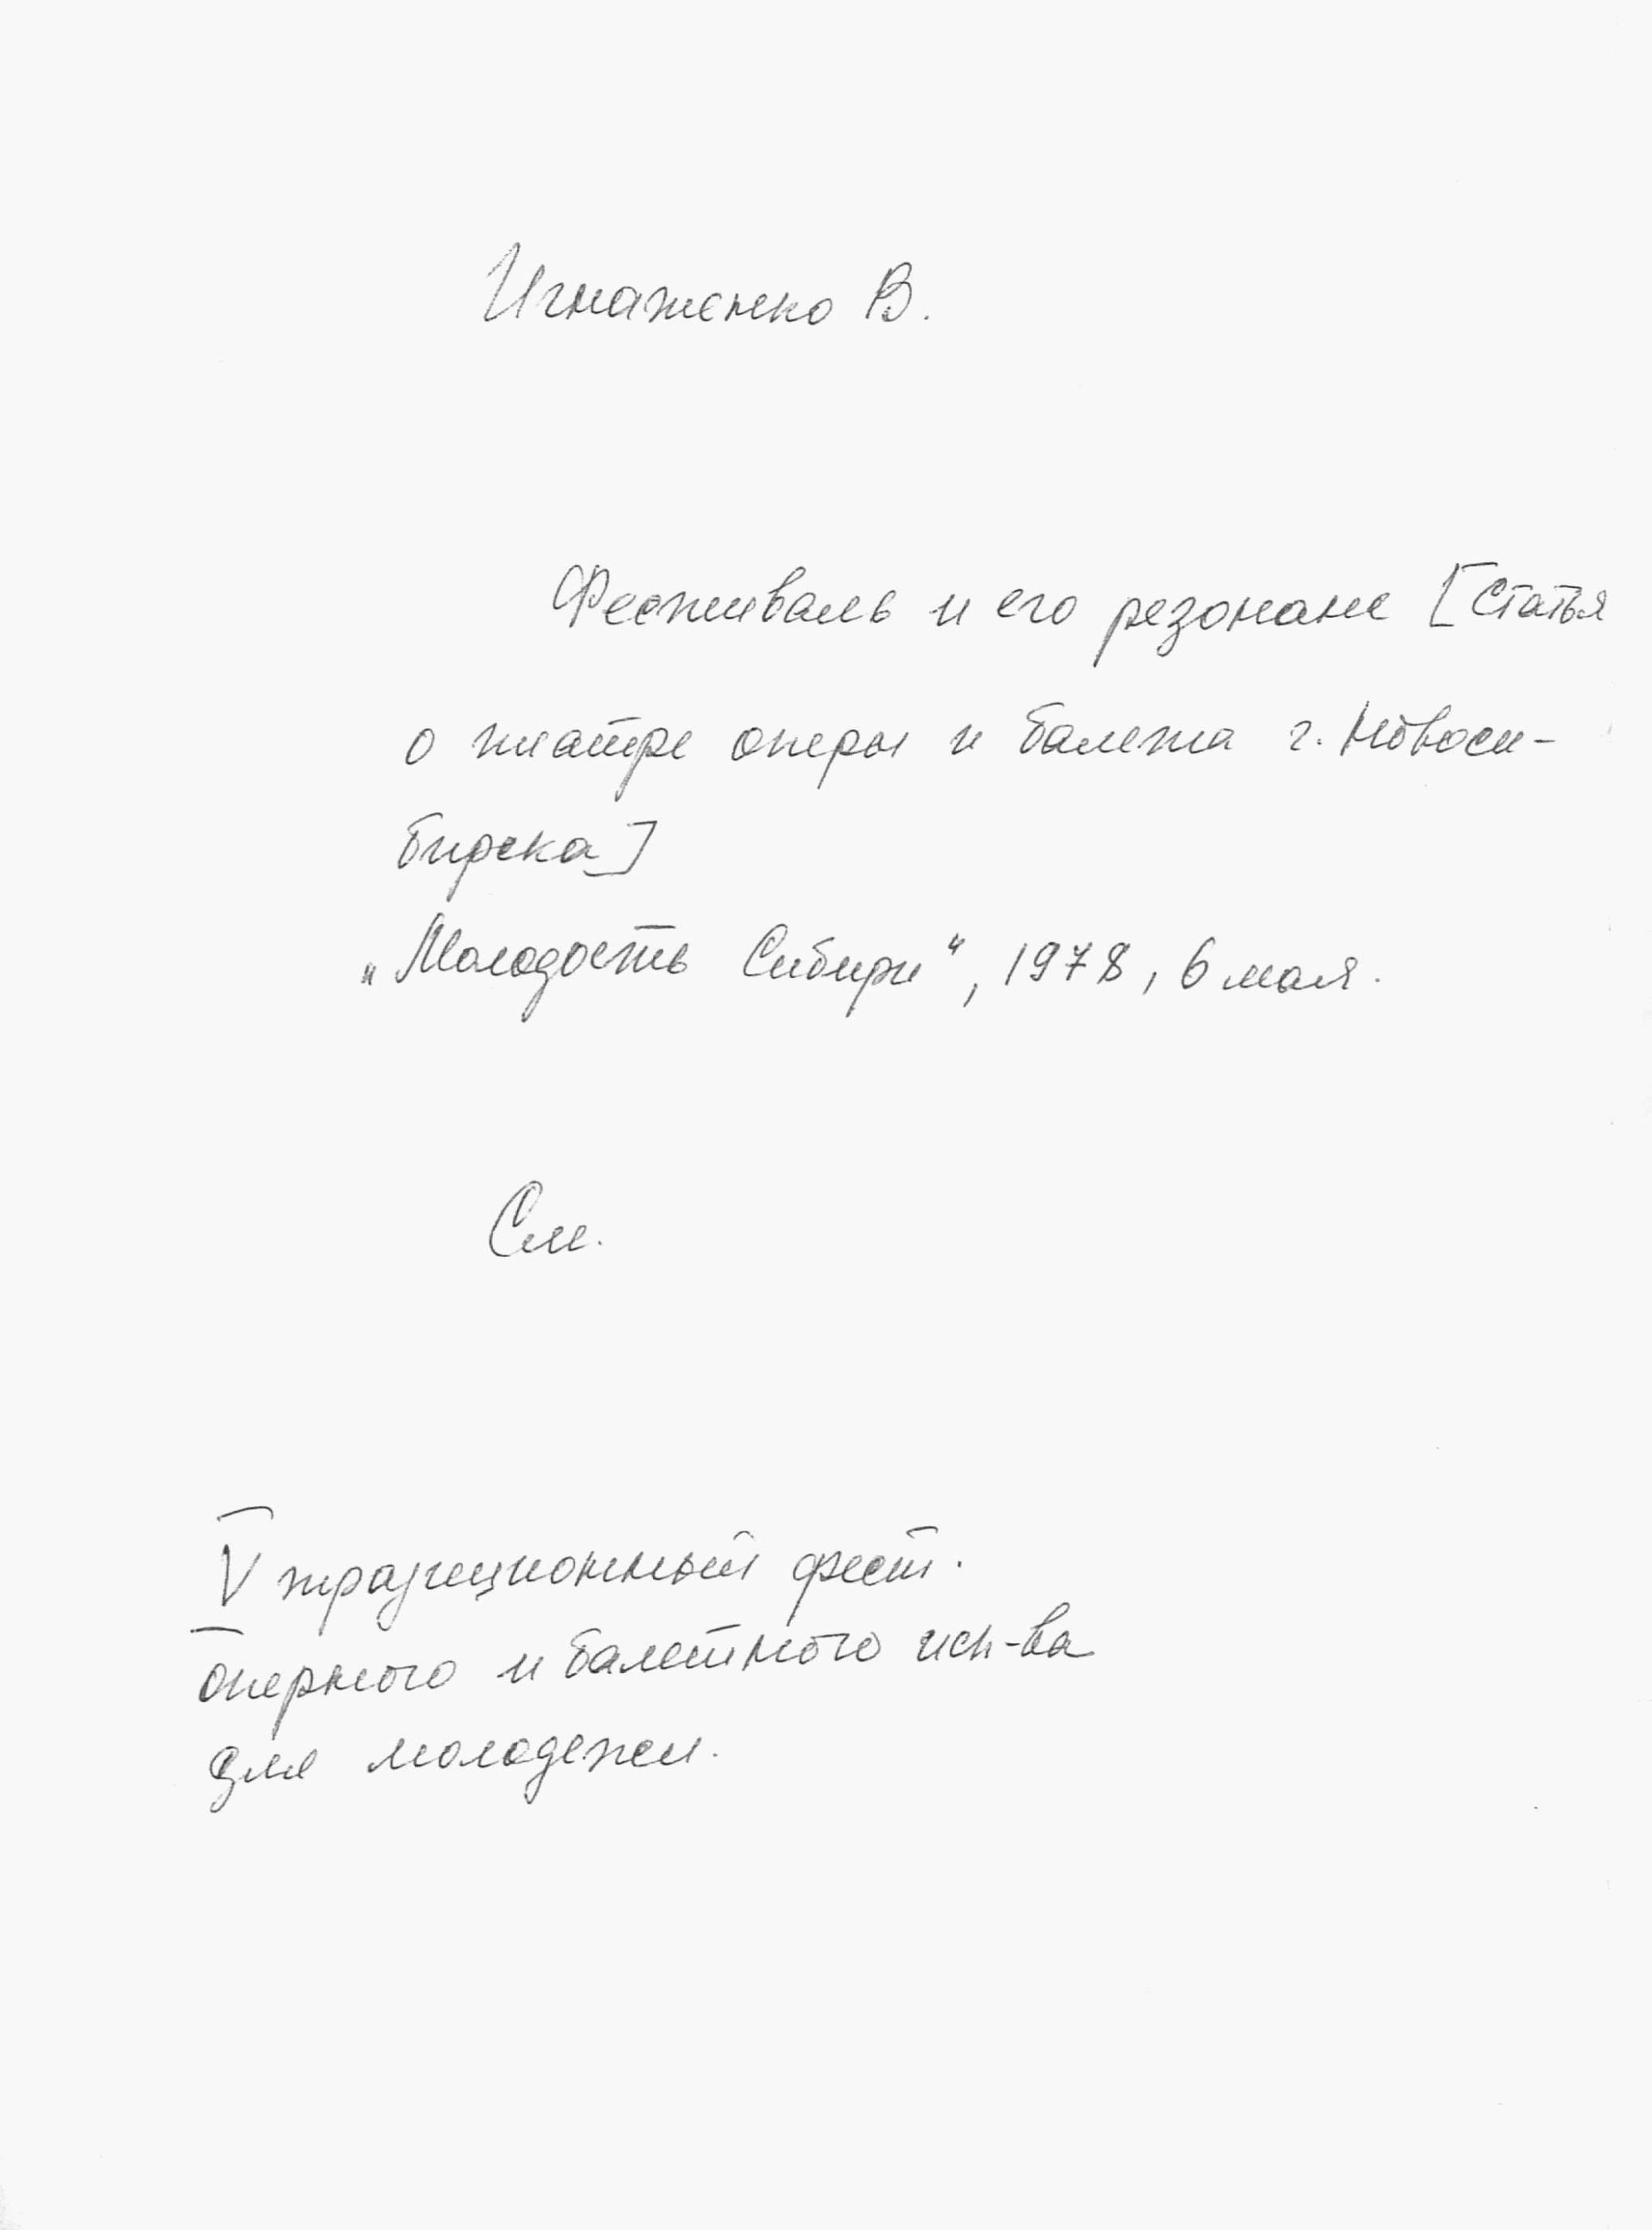 Игнатенко В.
Фестиваль и его резонанс [Статья
о театре оперы и балета г. Новоси-
бирска]
„Молодость Сибири", 1978, 6 мая.
См.
V традиционный фест.
оперного и балетного иск-ва
для молодежи.